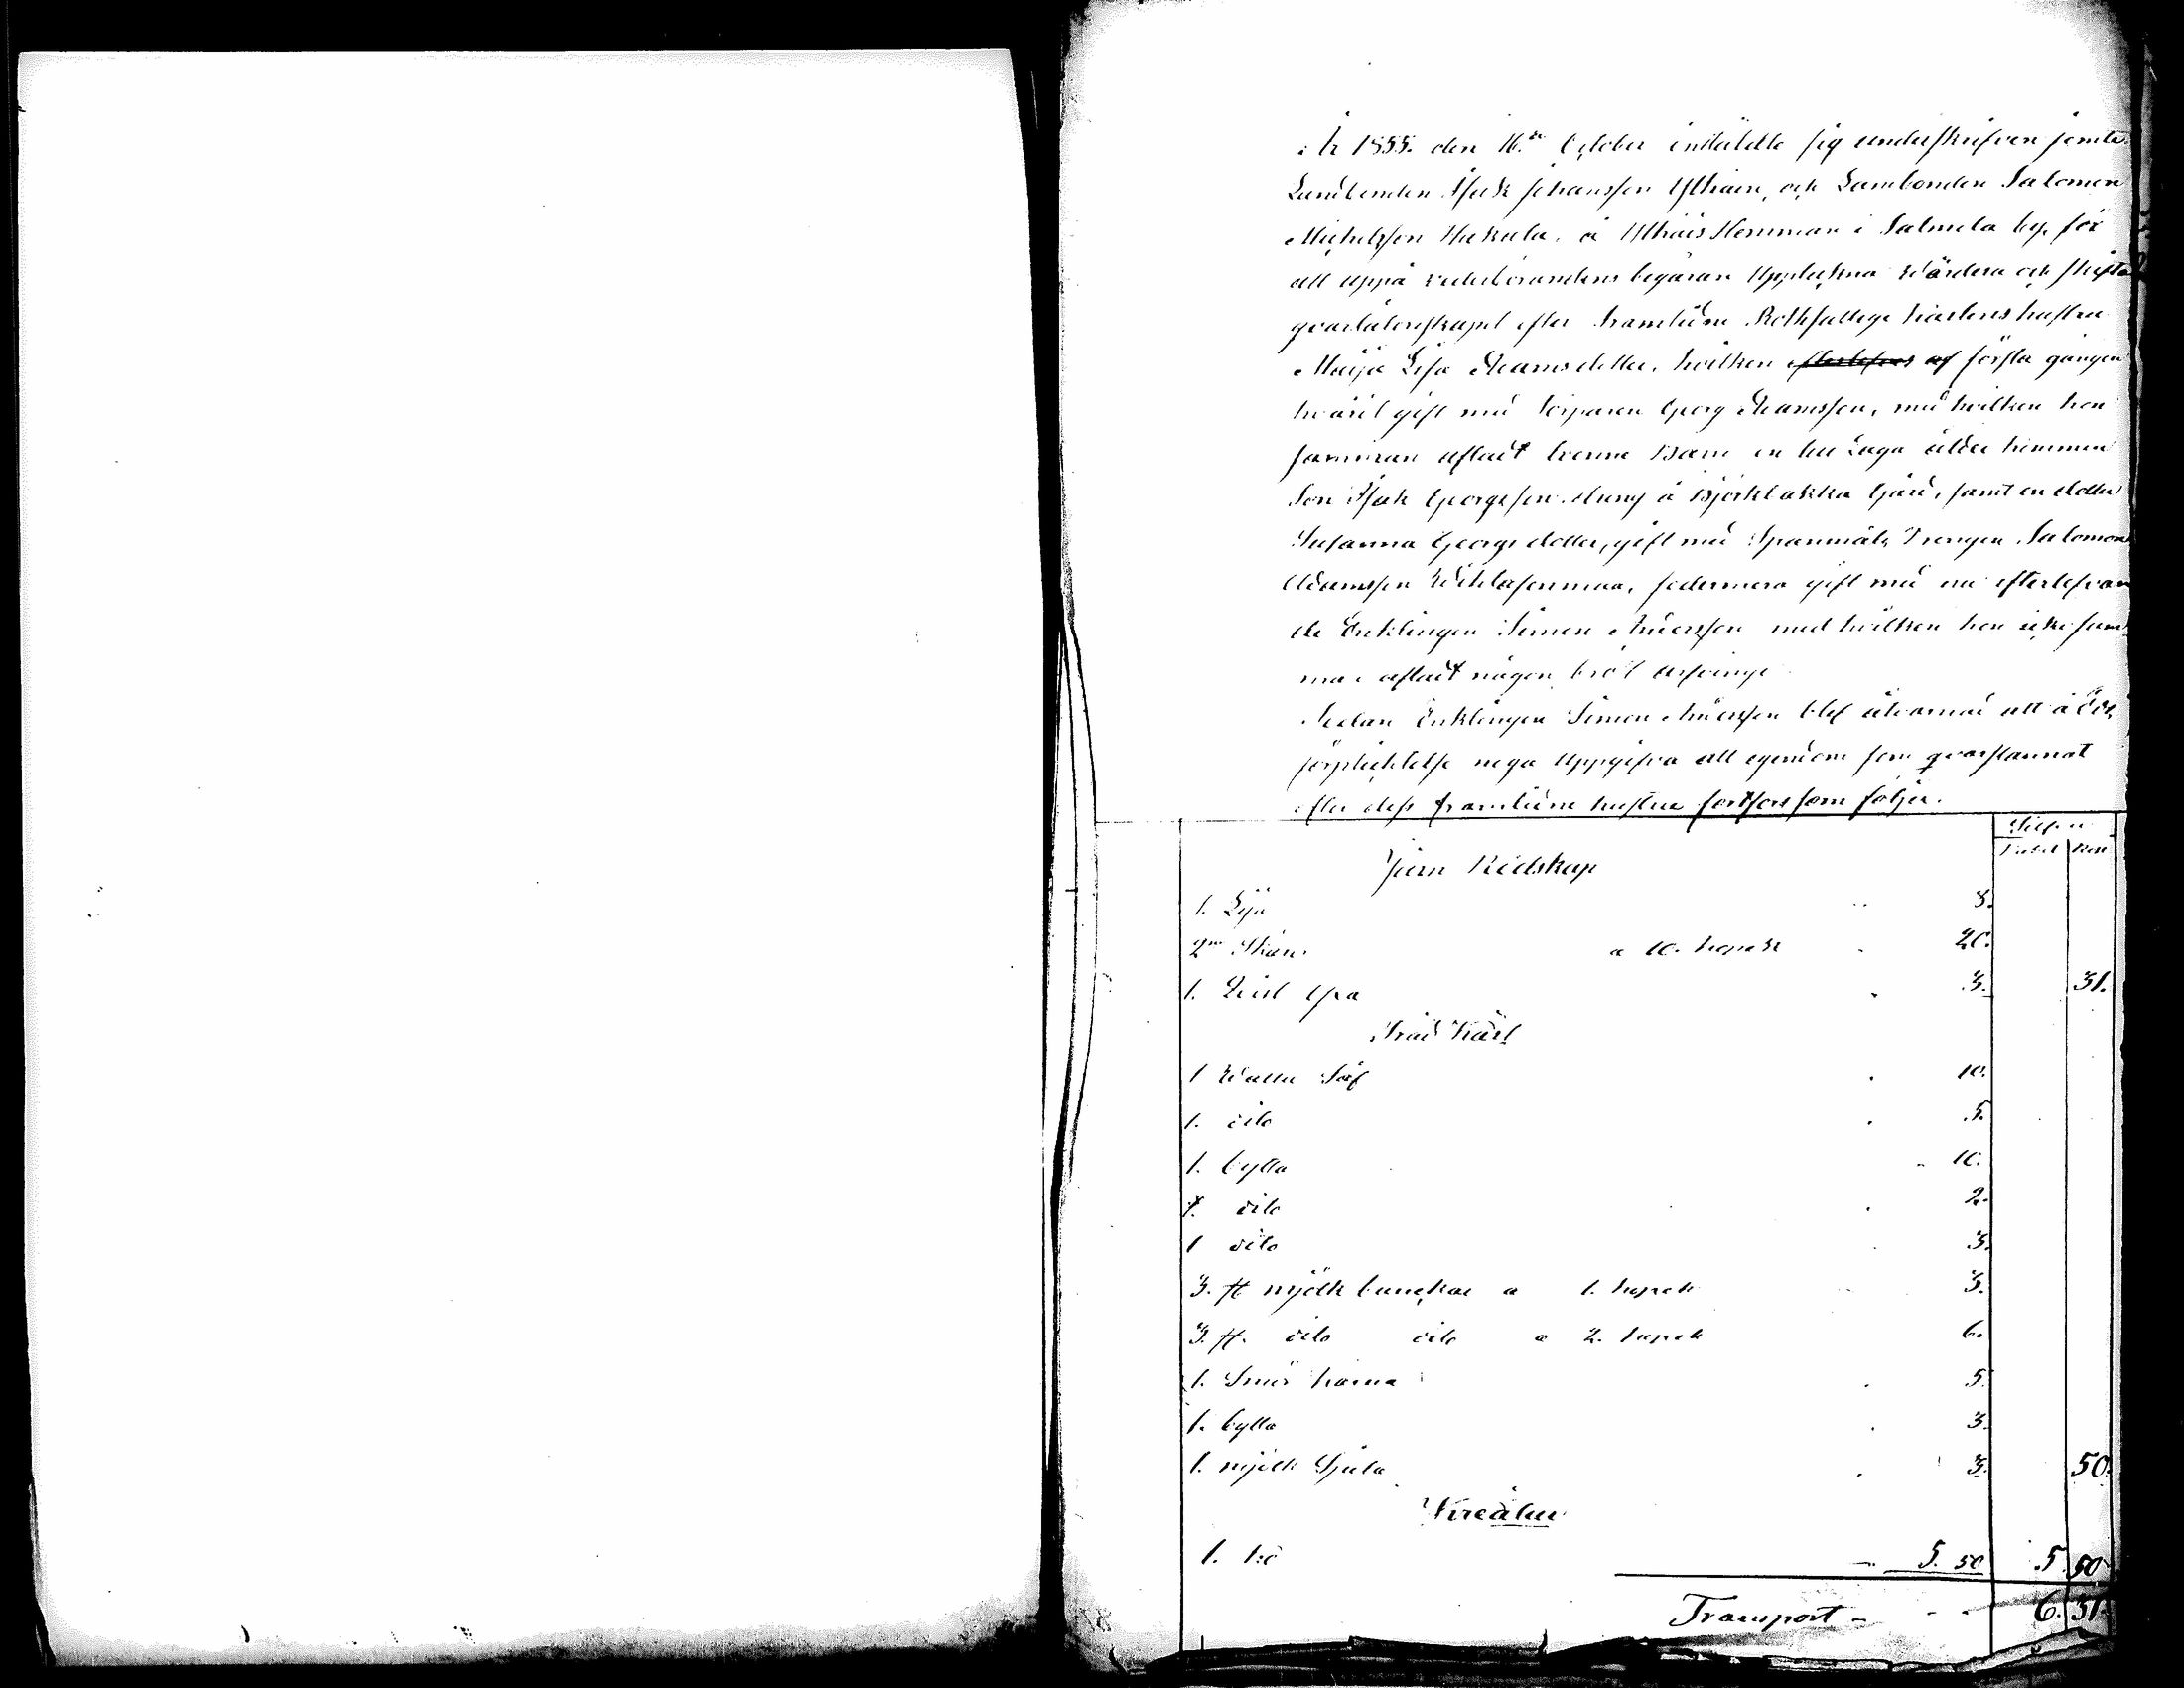 År 1855. den 16.de October instälde sig underskrifven jemte
Landbonden Isak Johansson Ylhäin, och Lambonden Salomon
Michelsson Hukula, å Ylhäis Hemman i Salmela by, för
att uppå vederbörandens begäran Uppteckna Wärdera och skifta
qvarlåtenskapet efter framlidne Rothfattige karlens hustru
Maija Lisa Adamsdotter, hvilken efterlefves af första gången
varit gift med Torparen Georg Adamsson, med hvilken hon
samman aflat tvenne Barn en till Laga ålder kommen
Son Isak Georgsson dräng å Björklakka Gård, samt en dotter
Susanna Georgs dotter, gift med Spanmåls Drengen Salomon
Adamsson sedermera gift med nu efterlefvan
de Enklingen Simon Andersson med hvilken hon icke sam
man aflat någon bröst arfvinge
Sedan Enklingen Simon Andersson blef åtvarnad att å Eds
förpliktelse noga uppgifva all egendom som qvarstannat
efter dess framlidne hustru fortfors som följer.
Silfver
Rubel Kop
Jern Redskap
1. Lija 8.
2ne Skäror a 10. kopek 20.
1. 3. 31.
Träd Kärl
1 Watten Så 10.
1. dito 5.
1. bytta 10.
1. dito 2.
1 dito 3.
3. st mjölk bunckar a 1. kopek 3.
3. st. dito dito a 2. kopek 6.
1. Smör kärna 5.
1. bytta 3.
1. mjölk Spila 3. 50.
Kreatur
1. Ko 5. 50 5. 50
Transport - - - 6. 31.